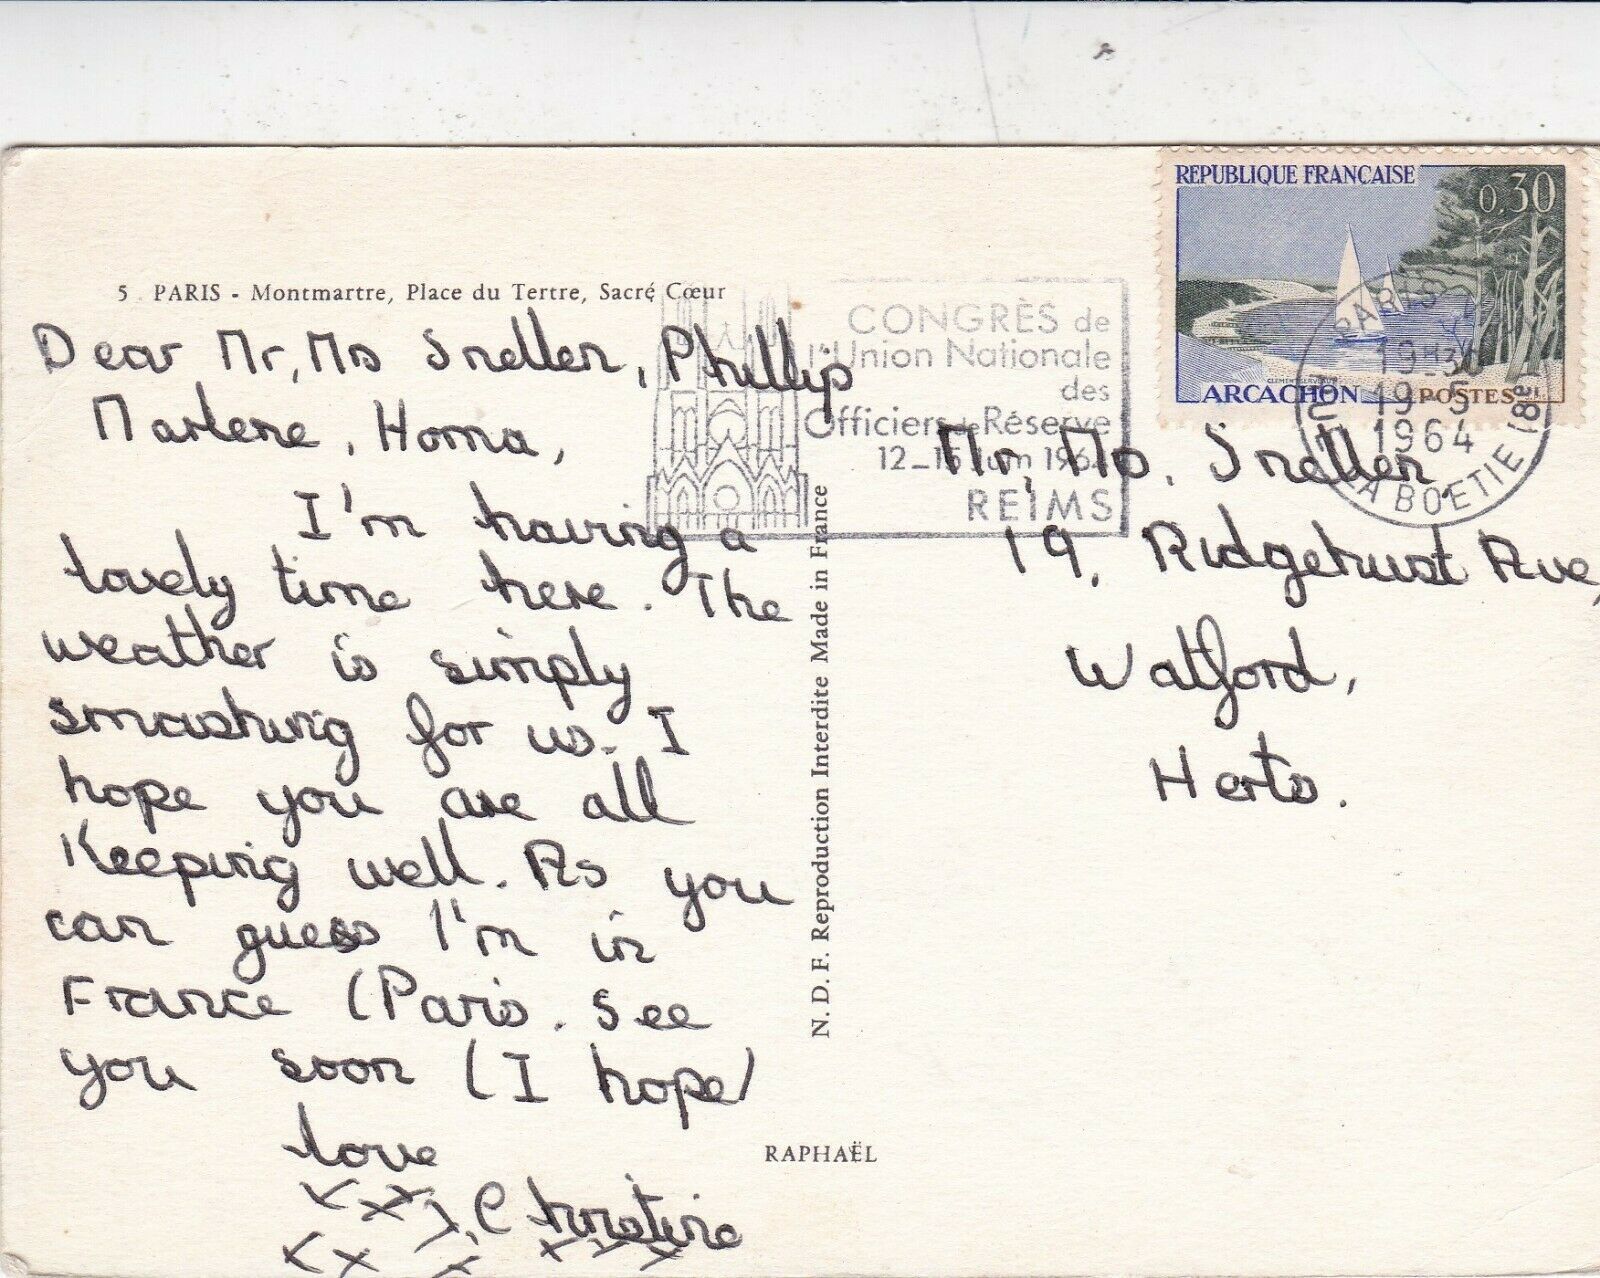 REPUBLIQUE FRANÇAISE
0,30
ARCACHON
POSTES
5 PARIS - Montmartre, Place du Tertre, Sacré Cœur
CONGRÈS de
l'Union Nationale
des
Officiers de Réserve
12-15 Juin 1964
REIMS
PARIS
19H30
19-5
1964
LA BOETIE (8e)
Dear Mr, Ms Snellen, Phillip
Marlene, Homa,
I'm having a
lovely time here. The
weather is simply
smashing for us. I
hope you are all
Keeping well. As you
can guess I'm in
France (Paris. See
you soon (I hope)
love
x x x
Christine
x x x x x x
Mr, Ms. Snellen,
19, Ridgehurst Ave,
Watford,
Herts.
N. D. F. Reproduction Interdite Made in France
RAPHAËL